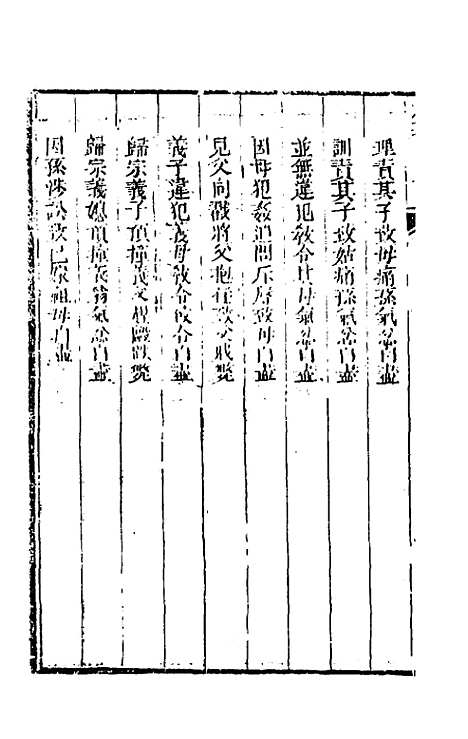 理責其子致母痛孫氣忿自盡
訓責其子致姑痛孫氣忿自盡
並無違犯教令其母氣忿自盡
因母犯姦追問斥辱致母自盡
見父向戳將父抱住致父戕斃
義子違犯義母教令致令自盡
歸宗義子頂撞義父槐毆跌斃
歸宗義媳頂撞義翁氣忿自盡
因孫涉訟致已原祖母自盡